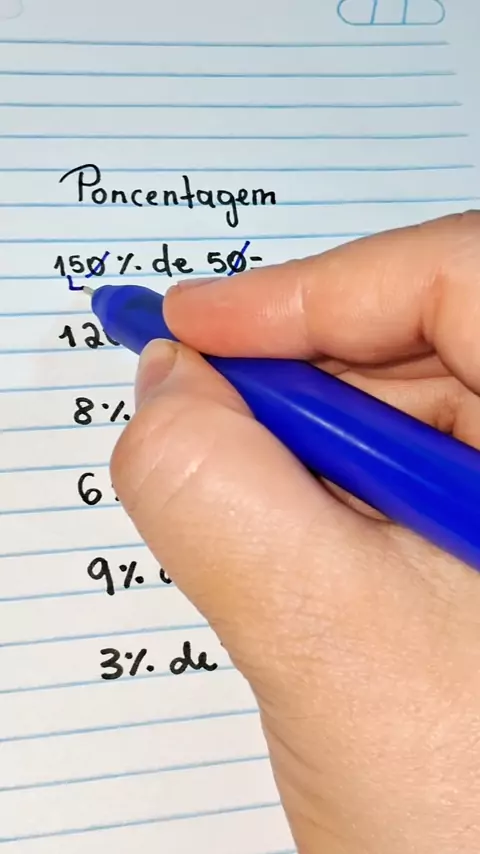 Porcentagem
150% de 50=
12
8%
6
9%
3% de